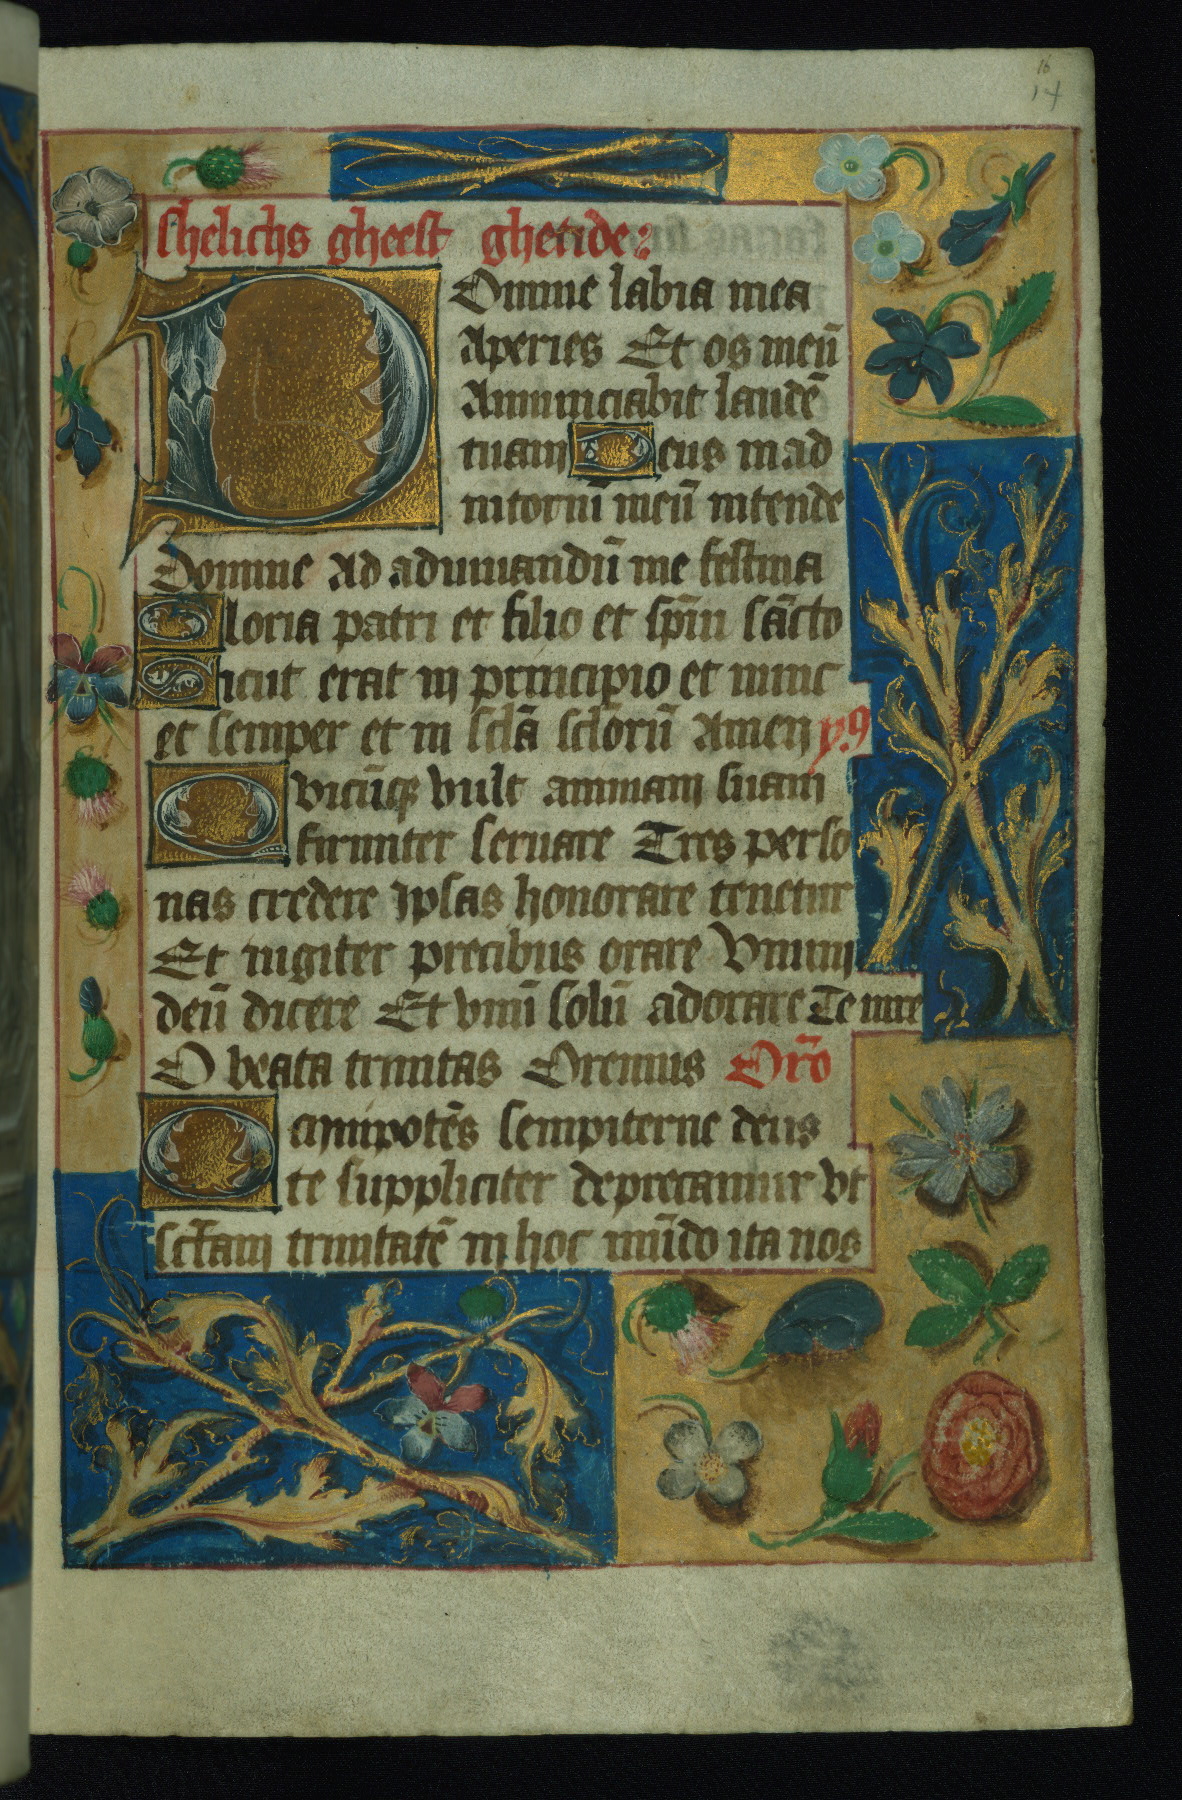 16
17
shelichs gheest ghetide:
Domine labia mea
Aperies Et os meū
Annunciabit laudē
tuam Deus in ad
iutoriū meū intende
Domine Ad adiuuandū me festina
Gloria patri et filio et sp̄ui sācto
Sicut erat in principio et nunc
et semper et in sc̄la sc̄lorū Amen y9
Quicūq; vult animam suam
firmiter seruare Tres perso
nas credere Ipsas honorare tenetur
Et iugiter precibus orare Vnum
deū dicere Et vnū solū adorare Te iure
O beata trinitas Oremus Or̄o
Omnipotēs sempiterne deus
te suppliciter deprecamur vt
sc̄tam trinitatē in hoc mūdo ita nos